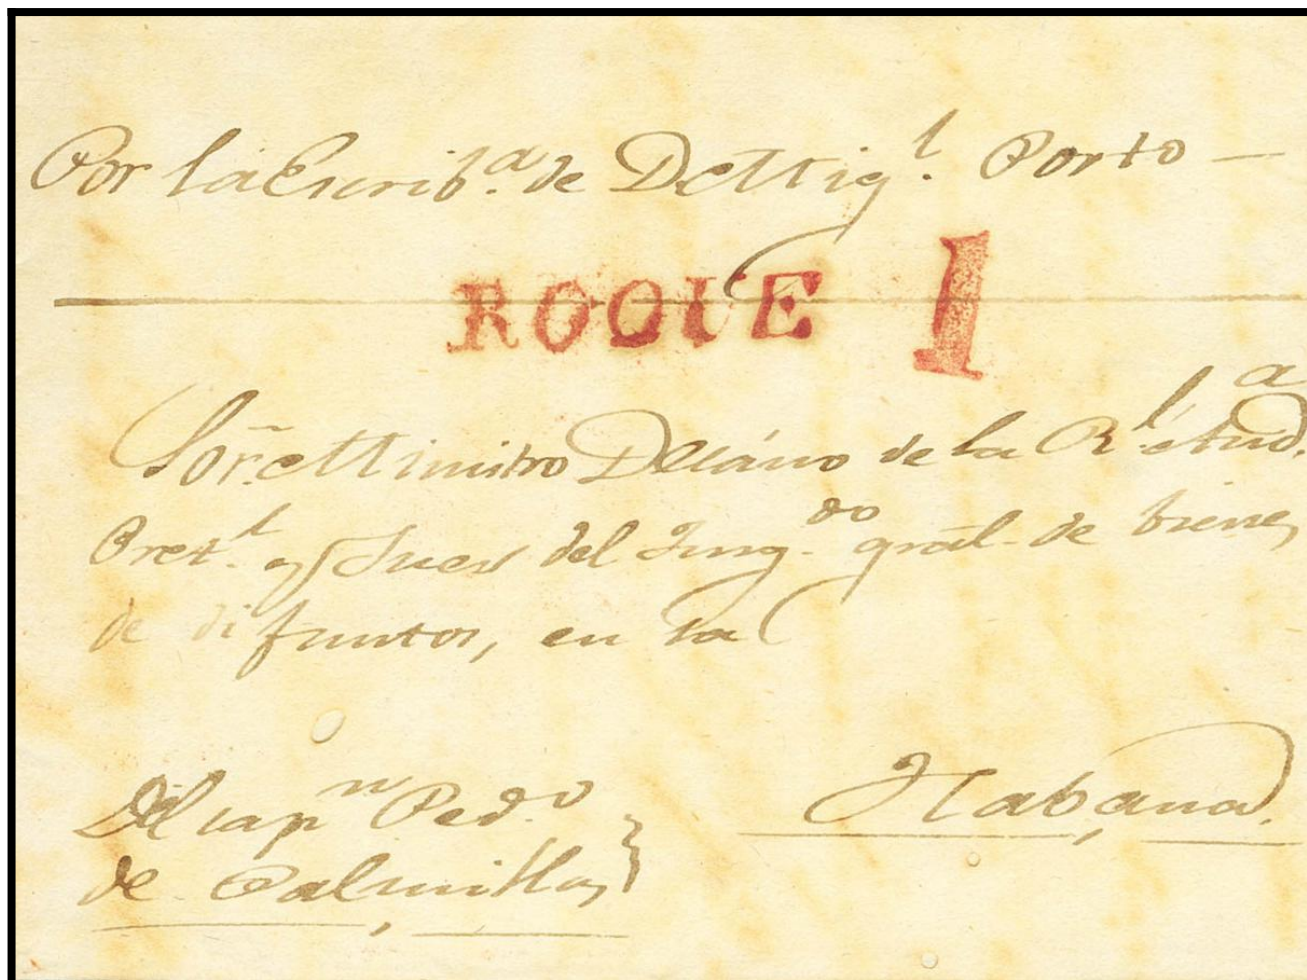 Por la Escrib.ª de D Mig.l Porto —
ROQUE 1
Sor. Ministro Decáno de la R.l Aud.a
Pret.l y Juez del Juzg.do gral. de bienes
de difuntos, en la
Habana.
Del cap.n Ped.o
de Palmillas